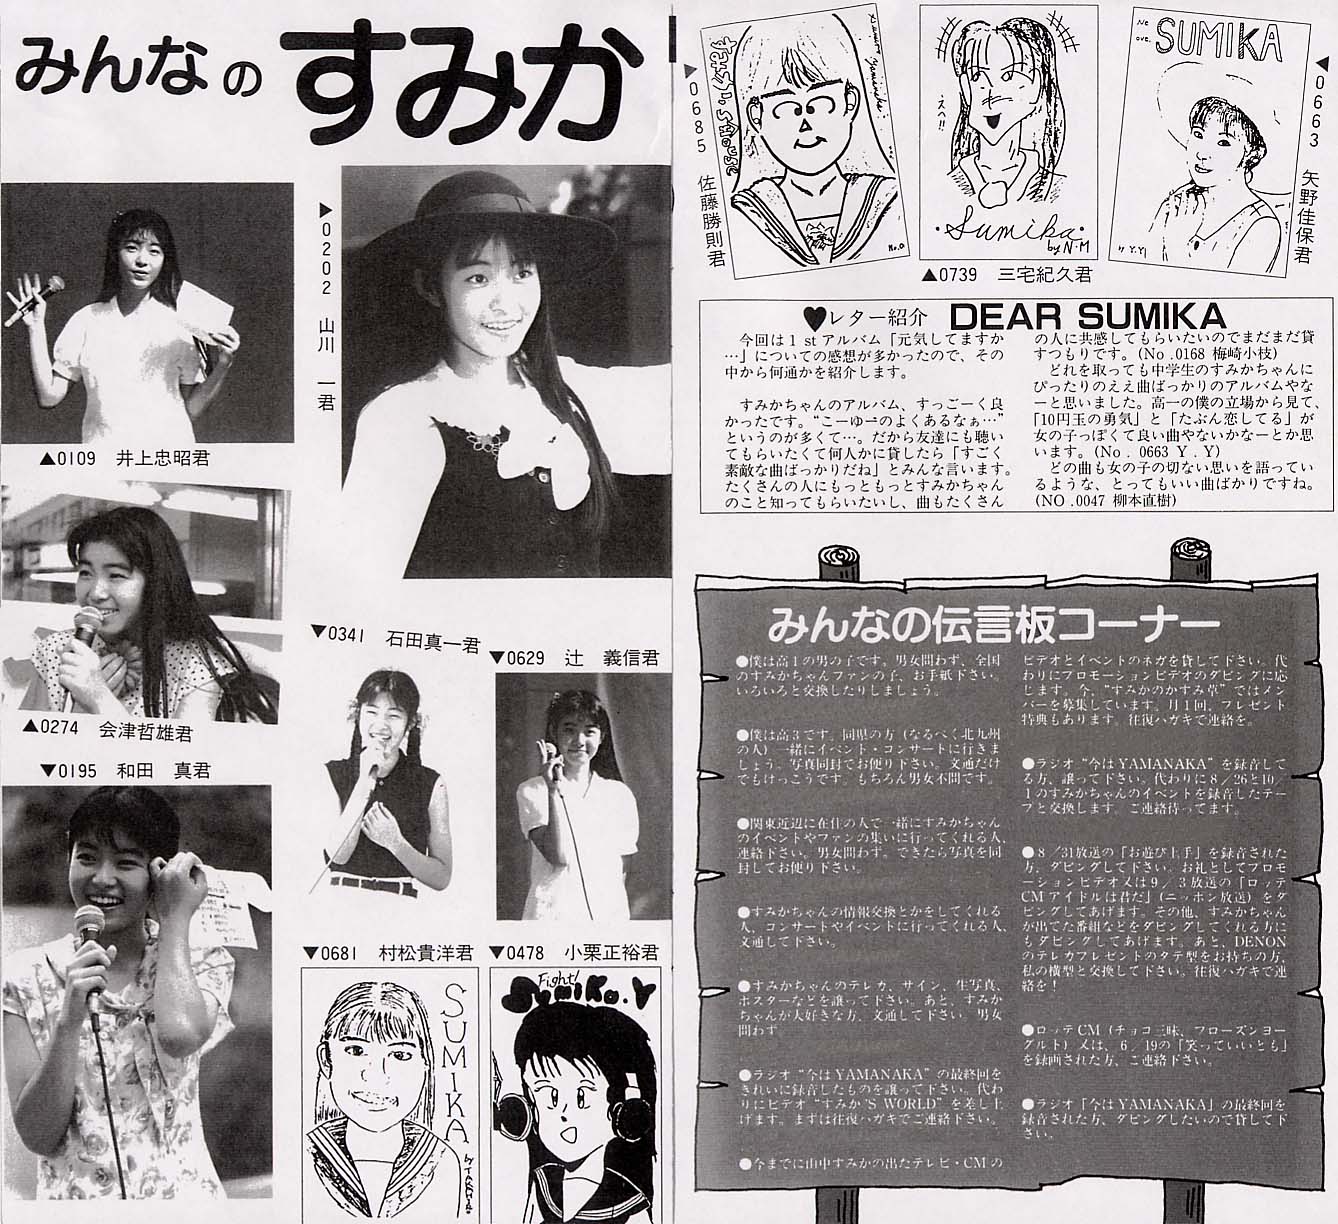 みんなの すみか
▲0109 井上忠昭君
▶0202 山川 一君
▲0274 会津哲雄君
▼0195 和田 真君
▼0341 石田真一君
▼0629 辻 義信君
▼0681 村松貴洋君
SUMIKA
by TAKAHIRO
▼0478 小栗正裕君
Fight!
SumiKa.
◀0685 佐藤勝則君
Sumika Yamanaka
No.0
えへ!!
Sumika
by N・M
▲0739 三宅紀久君
SUMIKA
by Y.Y
◀0663 矢野佳保君
♥レター紹介 DEAR SUMIKA
今回は1stアルバム「元気してますか
…」についての感想が多かったので、その
中から何通かを紹介します。
すみかちゃんのアルバム、すっごーく良
かったです。“こーゆーのよくあるなぁ…”
というのが多くて…。だから友達にも聴い
てもらいたくて何人かに貸したら「すごく
素敵な曲ばっかりだね」とみんな言います。
たくさんの人にもっともっとすみかちゃん
のこと知ってもらいたいし、曲もたくさん
の人に共感してもらいたいのでまだまだ貸
すつもりです。(No.0168 梅崎小枝)
どれを取っても中学生のすみかちゃんに
ぴったりのええ曲ばっかりのアルバムやな
ーと思いました。高一の僕の立場から見て、
「10円玉の勇気」と「たぶん恋してる」が
女の子っぽくて良い曲やないかなーとか思
います。(No. 0663 Y.Y)
どの曲も女の子の切ない思いを語ってい
るような、とってもいい曲ばかりですね。
(NO.0047 柳本直樹)
みんなの伝言板コーナー
●僕は高1の男の子です。男女問わず、全国
のすみかちゃんファンの子、お手紙下さい。
いろいろと交換したりしましょう。
●僕は高3です。同県の方(なるべく北九州
の人)一緒にイベント・コンサートに行きま
しょう。写真同封でお便り下さい。文通だけ
でもけっこうです。もちろん男女不問です。
●関東近辺に在住の人で一緒にすみかちゃん
のイベントやファンの集いに行ってくれる人、
連絡下さい。男女問わず。できたら写真を同
封してお便り下さい。
●すみかちゃんの情報交換とかをしてくれる
人、コンサートやイベントに行ってくれる人、
文通して下さい。
●すみかちゃんのテレカ、サイン、生写真、
ポスターなどを譲って下さい。あと、すみか
ちゃんが大好きな方、文通して下さい。男女
問わず
●ラジオ“今はYAMANAKA”の最終回を
きれいに録音したものを譲って下さい。代わ
りにビデオ“すみか'S WORLD”を差し上
げます。まずは往復ハガキでご連絡下さい。
●今までに山中すみかの出たテレビ・CMの
ビデオとイベントのネガを貸して下さい。代
わりにプロモーションビデオのダビングに応
じます。今、“すみかのかすみ草”ではメン
バーを募集しています。月1回、プレゼント
特典もあります。往復ハガキで連絡を。
●ラジオ“今はYAMANAKA”を録音して
る方、譲って下さい。代わりに8/26と10/
1のすみかちゃんのイベントを録音したテー
プと交換します。ご連絡待ってます。
●8/31放送の「お遊び上手」を録音された
方、ダビングして下さい。お礼としてプロモ
ーションビデオ又は9/3放送の「ロッテ
CMアイドルは君だ」(ニッポン放送)をダ
ビングしてあげます。その他、すみかちゃん
が出てた番組などをダビングしてくれる方に
もダビングしてあげます。あと、DENON
のテレカプレゼントのタテ型をお持ちの方、
私の横型と交換して下さい。往復ハガキで連
絡を!
●ロッテCM(チョコ三昧、フローズンヨー
グルト)又は、6/19の「笑っていいとも」
を録画された方、ご連絡下さい。
●ラジオ「今はYAMANAKA」の最終回を
録音された方、ダビングしたいので貸して下
さい。